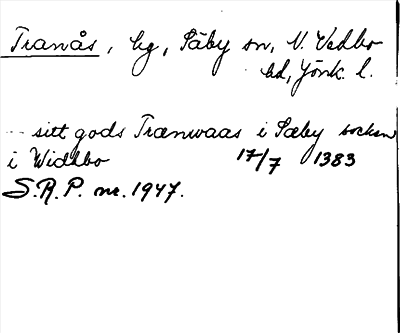 Tranås, hg, Säby sn, N. Vedbo
hd, Jönk. l.
-- sitt gods Trænwaas i Sæby socken
i Widhbo 17/7 1383
S.R.P. nr. 1947.